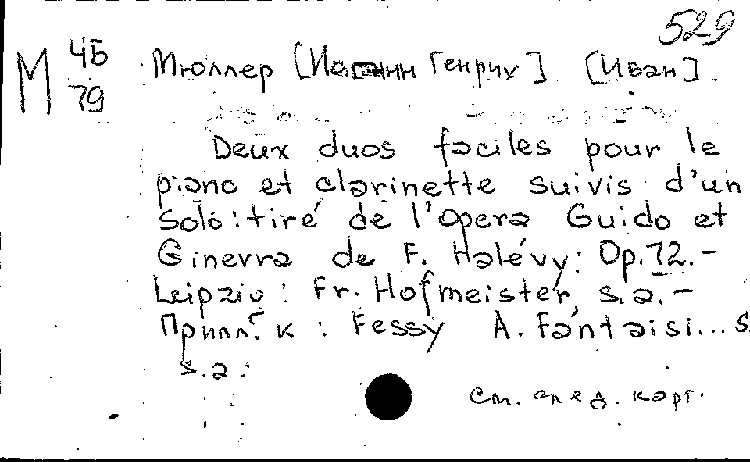 529
М 4Б
79
Мюллер [Иоганн Генрих] [Иван]
Deux duos faciles pour le
piano et clarinette suivis d'un
solo: tiré de l'opera Guido et
Ginevra de F. Halévy: Op. 72.-
Leipzig: Fr. Hofmeister, s.a.-
Прилл. к: Fessy A. Fantaisi... s.
s.a.
См. след. карт.